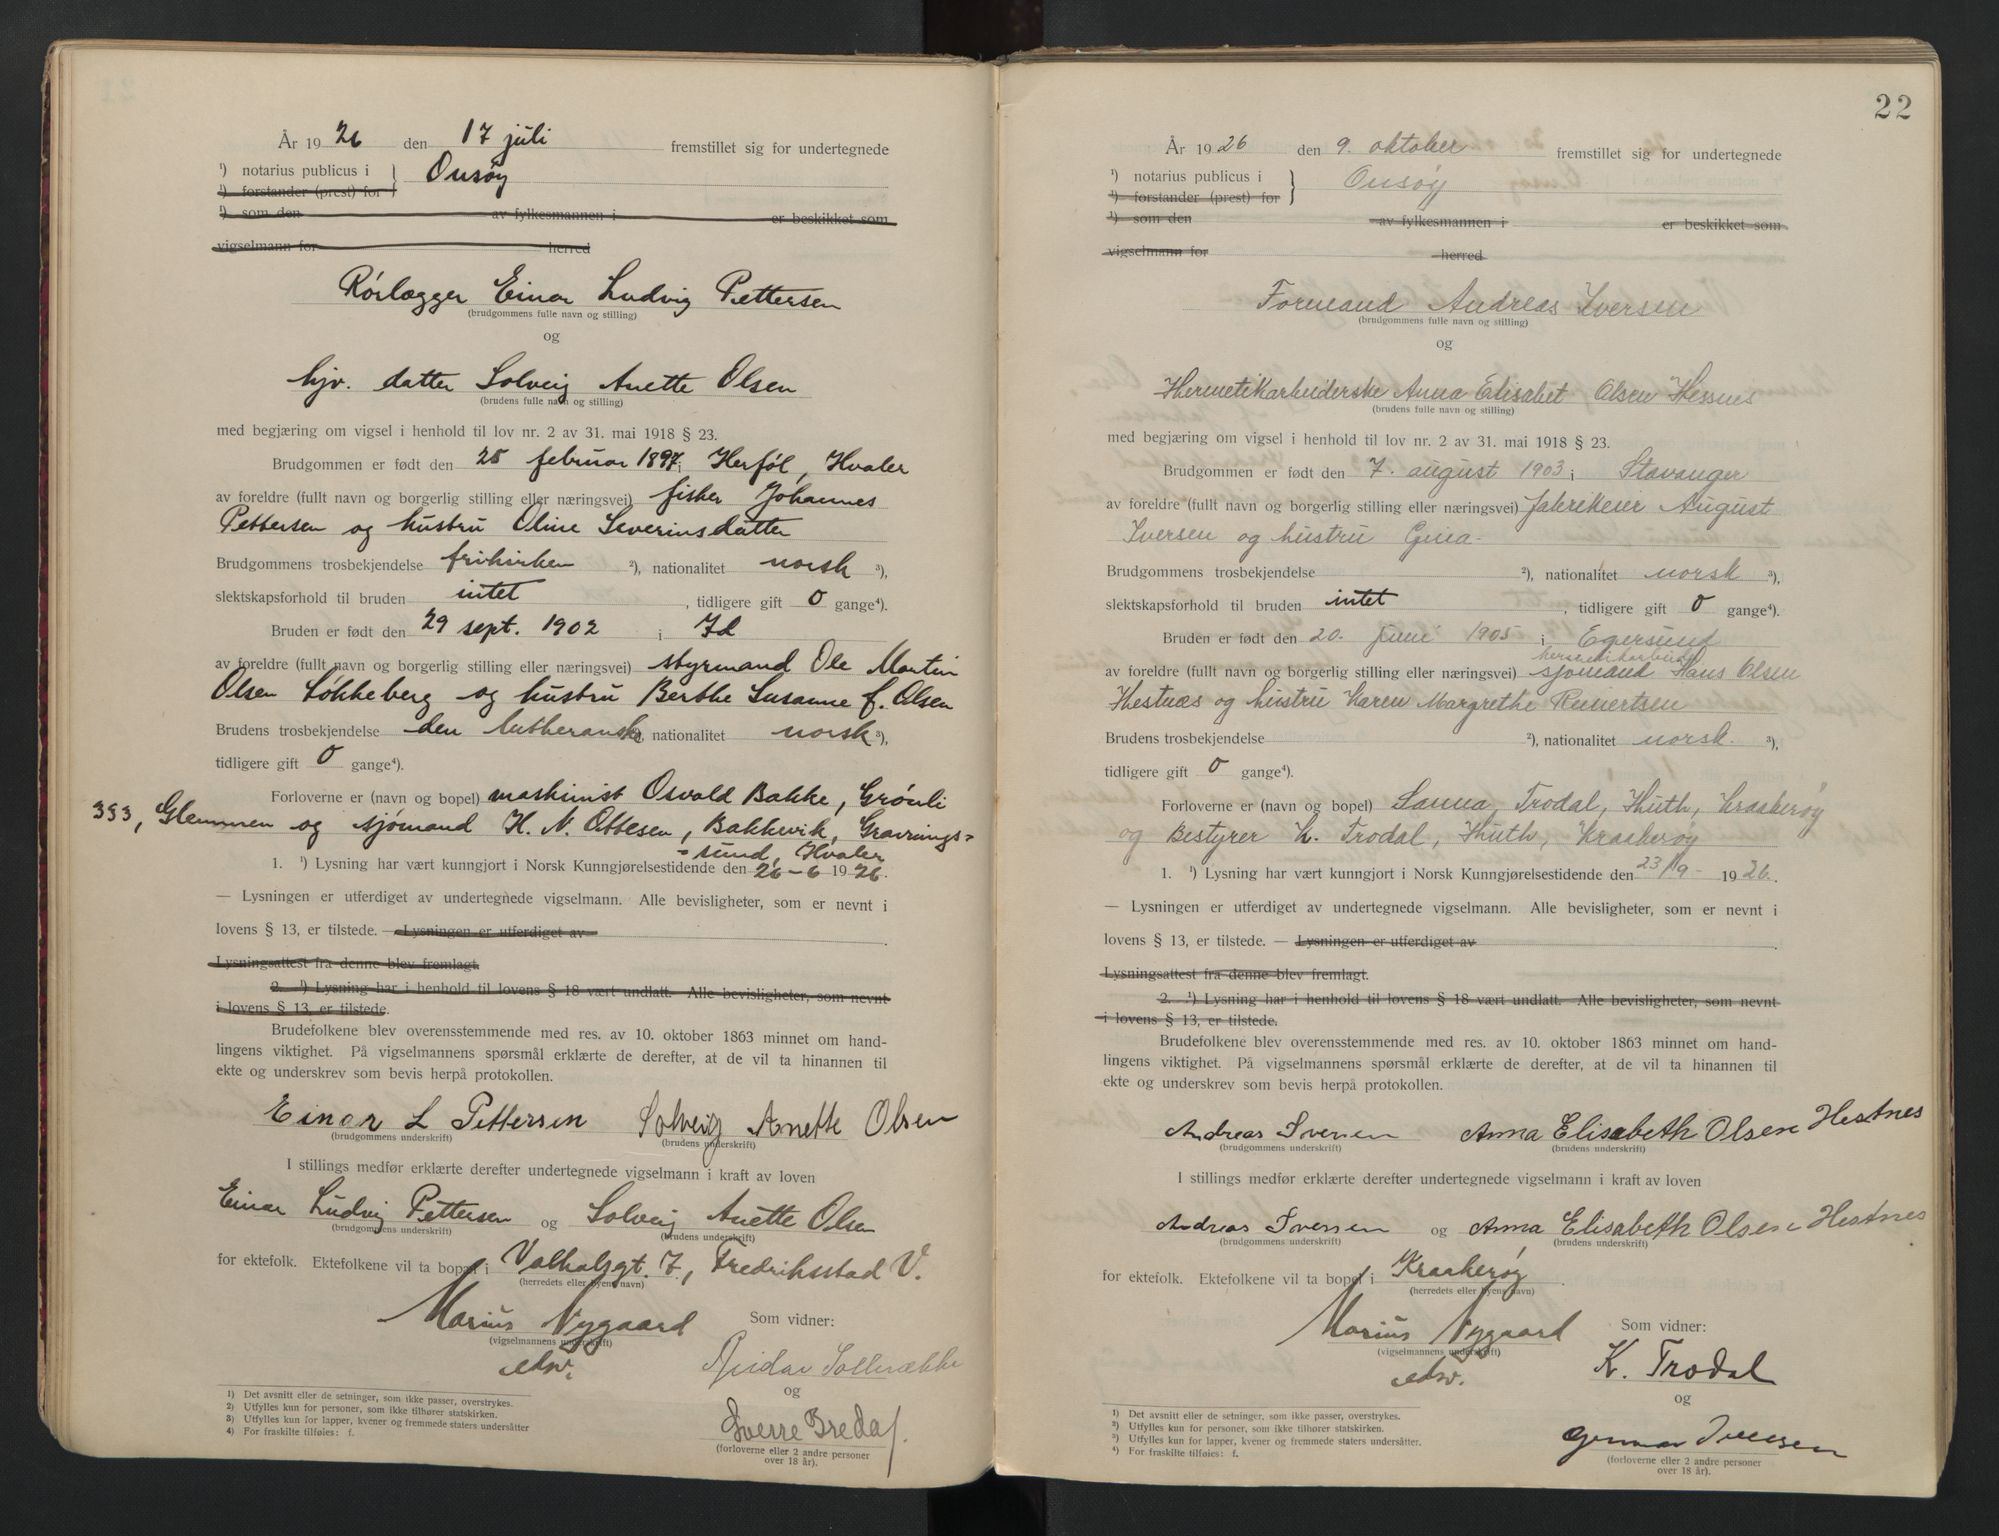 År 1926 den 17 juli fremstillet sig for undertegnede
¹) notarius publicus i } Onsøy
¹) forstander (prest) for
¹) som den av fylkesmannen i er beskikket som
vigselmann for herred
Rørlægger Einar Ludvig Pettersen
(brudgommens fulle navn og stilling)
og
hjv. datter Solveig Anette Olsen
(brudens fulle navn og stilling)
med begjæring om vigsel i henhold til lov nr. 2 av 31. mai 1918 § 23.
Brudgommen er født den 25 februar 1897 i Herføl, Hvaler
av foreldre (fullt navn og borgerlig stilling eller næringsvei) fisker Johannes
Pettersen og hustru Oline Severinsdatter
Brudgommens trosbekjendelse frikirken ²), nationalitet norsk ³),
slektskapsforhold til bruden intet, tidligere gift 0 gange⁴).
Bruden er født den 29 sept. 1902 i Id
av foreldre (fullt navn og borgerlig stilling eller næringsvei) styrmand Ole Martin
Olsen Løkkeberg og hustru Berthe Susanne f. Olsen
Brudens trosbekjendelse den lutheranske, nationalitet norsk ³),
tidligere gift 0 gange⁴).
Forloverne er (navn og bopel) maskinist Osvald Bakke, Grønli
353, Glemmen og sjømand H. N. Ottesen, Bakkevik, Gravnings=
=sund, Hvaler
1. ¹) Lysning har vært kunngjort i Norsk Kunngjørelsestidende den 26-6 1926.
— Lysningen er utferdiget av undertegnede vigselmann. Alle bevisligheter, som er nevnt i
lovens § 13, er tilstede. — Lysningen er utferdiget av
Lysningsattest fra denne blev fremlagt.
2. ¹) Lysning har i henhold til lovens § 18 vært undlatt. Alle bevisligheter, som nevnt
i lovens § 13, er tilstede.
Brudefolkene blev overensstemmende med res. av 10. oktober 1863 minnet om hand-
lingens viktighet. På vigselmannens spørsmål erklærte de derefter, at de vil ta hinannen til
ekte og underskrev som bevis herpå protokollen.
Einar L Pettersen Solveig Anette Olsen
(brudgommens underskrift) (brudens underskrift)
I stillings medfør erklærte derefter undertegnede vigselmann i kraft av loven
Einar Ludvig Pettersen og Solveig Anette Olsen
(brudgommens underskrift) (brudens underskrift)
for ektefolk. Ektefolkene vil ta bopel i Valhalsgt. 7, Fredriksstad V.
(herredets eller byens navn)
Marius Nygaard Som vidner:
(vigselmannens underskrift)
edsv. Reidar
og
Sverre Bredal.
(forloverne eller 2 andre personer
over 18 år).
1) Det avsnitt eller de setninger, som ikke passer, overstrykes.
2) Utfylles kun for personer, som ikke tilhører statskirken.
3) Utfylles kun for lapper, kvener og fremmede staters undersåtter
4) For fraskilte tilføies: f.
22
År 1926 den 9. oktober fremstillet sig for undertegnede
¹) notarius publicus i } Onsøy
¹) forstander (prest) for
¹) som den av fylkesmannen i er beskikket som
vigselmann for herred
Formand Andreas Iversen
(brudgommens fulle navn og stilling)
og
Hermetikarbeiderske Anna Elisabet Olsen Hessnes
(brudens fulle navn og stilling)
med begjæring om vigsel i henhold til lov nr. 2 av 31. mai 1918 § 23.
Brudgommen er født den 7. august 1903 i Stavanger
av foreldre (fullt navn og borgerlig stilling eller næringsvei) fabrikeier August
Iversen og hustru Gina
Brudgommens trosbekjendelse ²), nationalitet norsk ³),
slektskapsforhold til bruden intet, tidligere gift 0 gange⁴).
Bruden er født den 20. juni 1905 i Egersund
av foreldre (fullt navn og borgerlig stilling eller næringsvei) sjømand Hans Olsen
Hestnæs og hustru Karen Margrethe Reinertsen
Brudens trosbekjendelse ²), nationalitet norsk. ³),
tidligere gift 0 gange⁴).
Forloverne er (navn og bopel) Sanna Trodal, Huth, Kraakerøy
og Bestyrer K. Trodal, Huth, Kraakerøy
1. ¹) Lysning har vært kunngjort i Norsk Kunngjørelsestidende den 23/9- 1926.
— Lysningen er utferdiget av undertegnede vigselmann. Alle bevisligheter, som er nevnt i
lovens § 13, er tilstede. — Lysningen er utferdiget av
Lysningsattest fra denne blev fremlagt.
2. ¹) Lysning har i henhold til lovens § 18 vært undlatt. Alle bevisligheter, som nevnt
i lovens § 13, er tilstede.
Brudefolkene blev overensstemmende med res. av 10. oktober 1863 minnet om hand-
lingens viktighet. På vigselmannens spørsmål erklærte de derefter, at de vil ta hinannen til
ekte og underskrev som bevis herpå protokollen.
Andreas Iversen Anna Elisabeth Olsen Hestnes
(brudgommens underskrift) (brudens underskrift)
I stillings medfør erklærte derefter undertegnede vigselmann i kraft av loven
Andreas Iversen og Anna Elisabeth Olsen Hestnes
(brudgommens underskrift) (brudens underskrift)
for ektefolk. Ektefolkene vil ta bopel i Kraakerøy.
(herredets eller byens navn)
Marius Nygaard Som vidner:
(vigselmannens underskrift)
edsv. K. Trodal
og
Gunnar Iversen
(forloverne eller 2 andre personer
over 18 år).
¹) Det avsnitt eller de setninger, som ikke passer, overstrykes.
²) Utfylles kun for personer, som ikke tilhører statskirken.
³) Utfylles kun for lapper, kvener og fremmede staters undersåtter.
⁴) For fraskilte tilføies: f.